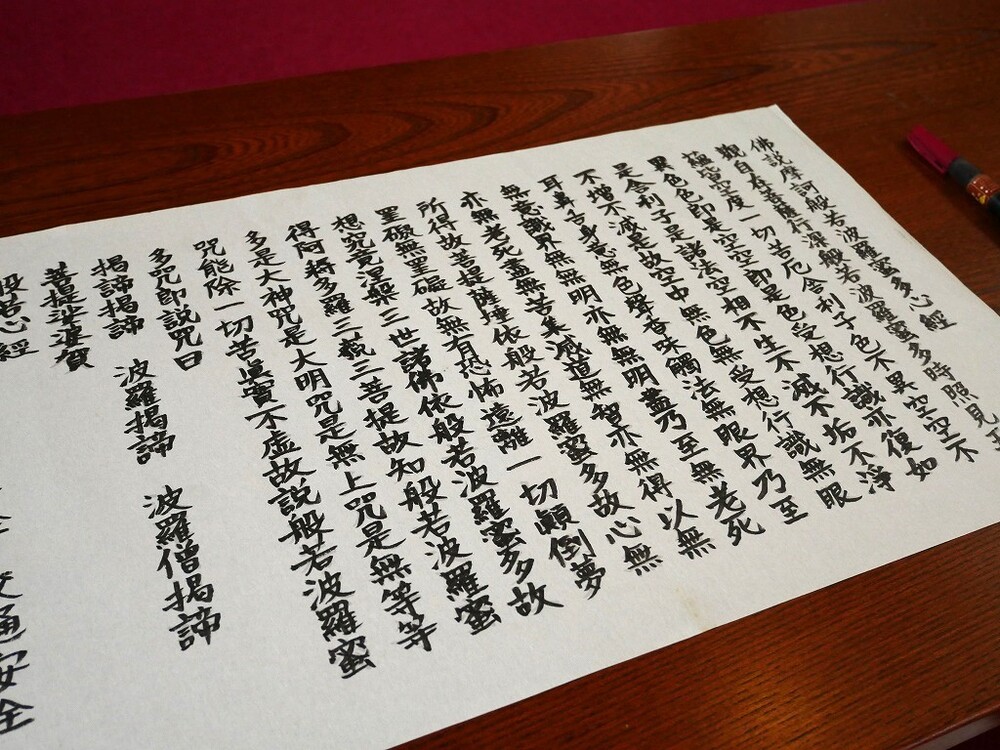 佛説摩訶般若波羅蜜多心經
觀自在菩薩行深般若波羅蜜多時照見五
蘊皆空度一切苦厄舍利子色不異空空不
異色色即是空空即是色受想行識亦復如
是舍利子是諸法空相不生不滅不垢不淨
不增不減是故空中無色無受想行識無眼
耳鼻舌身意無色聲香味觸法無眼界乃至
無意識界無無明亦無無明盡乃至無老死
亦無老死盡無苦集滅道無智亦無得以無
所得故菩提薩埵依般若波羅蜜多故心無
罣礙無罣礙故無有恐怖遠離一切顛倒夢
想究竟涅槃三世諸佛依般若波羅蜜多故
得阿耨多羅三藐三菩提故知般若波羅蜜
多是大神咒是大明咒是無上咒是無等等
咒能除一切苦眞實不虚故説般若波羅蜜
多咒即説咒曰
揭諦揭諦　波羅揭諦　波羅僧揭諦
菩提娑婆賀
般若心經
交通安全